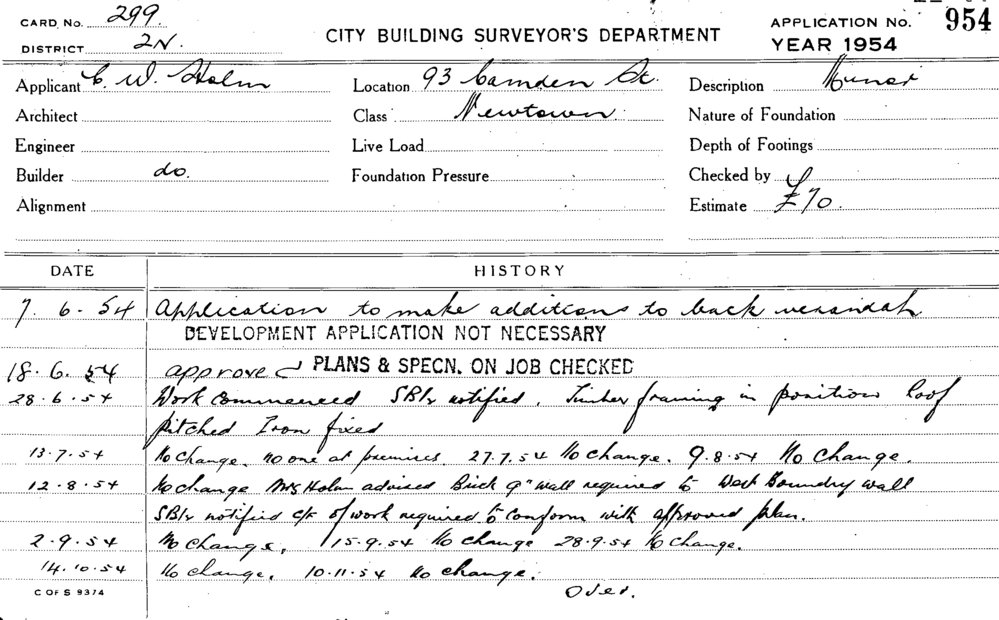 CARD. No. 299.
DISTRICT 2N.
CITY BUILDING SURVEYOR'S DEPARTMENT
APPLICATION No. 954
YEAR 1954
Applicant C. W. Holm
Location 93 Camden St.
Description Minor
Architect
Class Newtown
Nature of Foundation
Engineer
Live Load
Depth of Footings
Builder do.
Foundation Pressure
Checked by
Alignment
Estimate £70.
DATE HISTORY
7. 6. 54 Application to make additions to back verandah
DEVELOPMENT APPLICATION NOT NECESSARY
18. 6. 54 approved PLANS & SPECN. ON JOB CHECKED
28. 6. 54 Work Commenced notified. Timber framing in position Roof
pitched Iron fixed
13. 7. 54 No Change. no one at premises. 27.7.54 No Change. 9.8.54 No Change.
12. 8. 54 No change Mrs Holm advised Brick 9" wall required to West Boundry wall
notified of work required to Conform with approved plan.
2. 9. 54 No Change. 15.9.54 No Change 28.9.54 No Change.
14. 10. 54 No change. 10.11.54 No change.
Over.
C OF S 9374